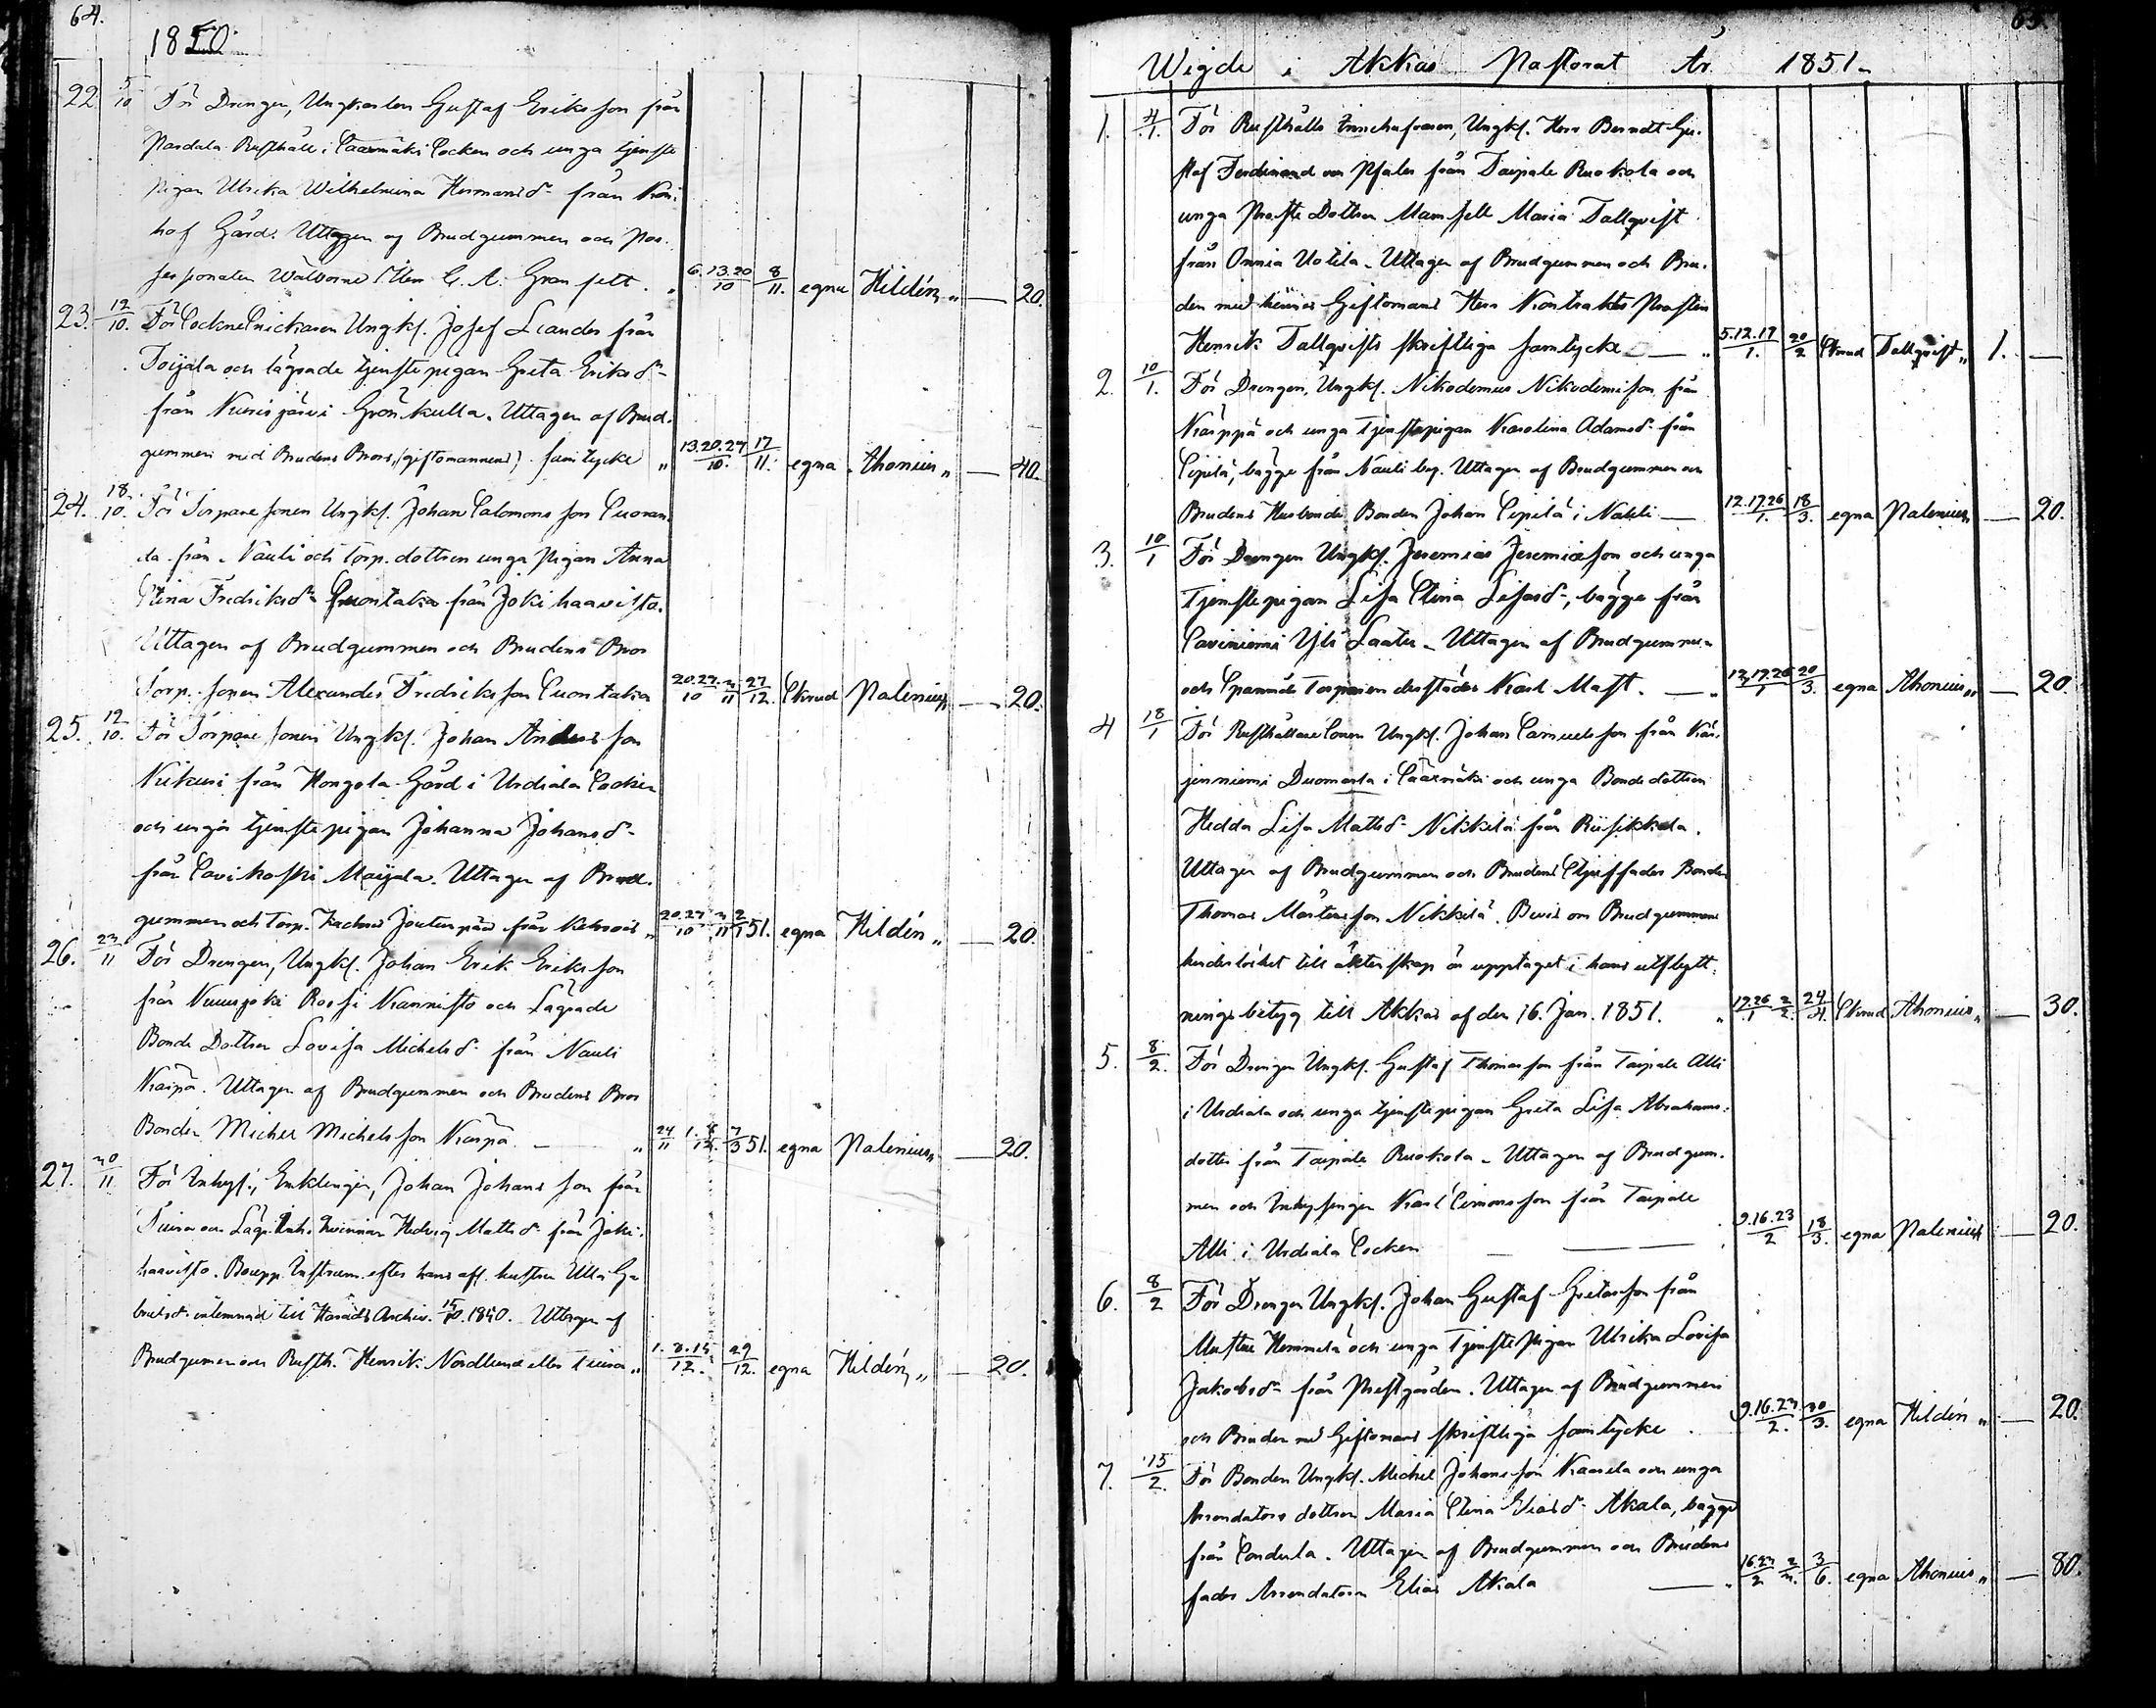 64.
1850.
22. 5/10 För Drengen, Ungkarlen Gustaf Eriksson från
Pardala Rusthåll i Säärmäki Socken och unga tjenste
pigan Ulrika Wilhelmina Hermansdr från
hof Gård. Uttagen af Brudgummen och Pos-
sessionaten Wälborne Herr C. A. Granfelt. „ 6.13.20/10 8/11. egna Hildén „ — 20.
23. 12/10. För Sockne Snickaren Ungkl. Josef Leander från
Toijala och lägrade tjenstepigan Greta Eriksdr
från Kurisjärvi Grönkulla. Uttagen af Brud-
gummen med Brudens Brors, (giftomannens) samtycke „ 13.20.27/10. 17/11. egna Ahonius „ — 40.
24. 18/10. För Torparesonen Ungkl. Johan Salomonsson
från Nauli och Torp. dottren unga Pigan Anna
Stina Fredriksdr från Jokihaavisto.
Uttagen af Brudgummen och Brudens Bror
Torp. sonen Alexander Fredriksson Suontaka 20.27/10 3/11 27/12. Skrud Palenius „ — 20.
25. 12/10. För Torpare sonen Ungkl. Johan Andersson
Nikuri från Hongola Gård i Urdiala Socken
och unga tjenstepigan Johanna Johansdr
från Savikoski Maijala. Uttagen af Brud-
gummen och Torp. från „ 20.27/10 3/11 2/1 51. egna Hildén „ — 20.
26. 23/11 För Drengen, Ungkl. Johan Erik Eriksson
från Rossi Kannisto och Lägrade
Bonde Dottren Lovisa Michelsdr från Nauli
Karpa. Uttagen af Brudgummen och Brudens Bror
Bonden Michel Michelsson Karpa. — „ 24/11 1.8/12. 7/3 51. egna Palenius „ — 20.
27. 30/11 För Inhys., Enklingen, Johan Johansson från
och Läg. Inh. qwinnan Hedvig Mattsdr från Joki-
haavisto. Boupp. Instrum. efter hans afl. hustru Ulla Ga-
brielsdr inlemnad till Härads Archiv. 1840. Uttagen af
Brudgummen och Rusth. Henrik Nordlund eller „ 1.8.15/12. 29/12. egna Hildén „ — 20.
65.
Wigde i Akkas Pastorat År 1851.
1. 4/1. För Rusthålls Innehafvaren, Ungkl. Herr Berndt Gu-
staf Ferdinand von Pfaler från Taipale Ruokola och
unga Prosts Dottren Mamsell Maria Tallqvist
från Onnia Uotila. Uttagen af Brudgummen och Bru-
den med hennes Giftomans Herr Kontrakts Prosten
Henrik Tallqvists skriftliga samtycke — „ 5.12.19/1. 20/2 Skrud Tallqvist „ 1. —
2. 10/1. För Drengen, Ungkl. Nikodemus Nikodemisson från
Kärppä och unga Tjenstepigan Karolina Adamsdr från
Sipilä, bägge från Nauli by. Uttagen af Brudgummen och
Brudens Husbonde Bonden Johan Sipilä i Nauli — 12.19.26/1. 18/3. egna Palenius — 20.
3. 10/1 För Drengen Ungkl. Jeremias Jeremiasson och unga
Tjenstepigan Lisa Stina Lisasdr, bägge från
Saviniemi Yli Laati. Uttagen af Brudgummen
och Karl Matt. — „ 12.19.26/1 20/3. egna Ahonius „ — 20.
4 18/1 För Rusthållare Sonen Ungkl. Johan Samuelsson från Kär-
jenniemi Duomarla i Säärmäki och unga Bondedottren
Hedda Lisa Mattsdr Nikkilä från Riisikkala.
Uttagen af Brudgummen och Brudens Styffader Bonden
Thomas Mårtensson Nikkilä. Bevis om Brudgummens
hinderlöshet till äktenskap är upptaget i hans utflytt-
ningsbetyg till Akkas af den 16. Jan. 1851. „ 19.26/1 2/2. 24/4. Skrud Ahonius „ — 30.
5. 8/2. För Drengen Ungkl. Gustaf Thomasson från Taipale Alli
i Urdiala och unga tjenstepigan Greta Lisa Abrahams-
dotter från Taipale Ruokola. Uttagen af Brudgum-
men och Inhysingen Karl Simonsson från Taipale
Alli i Urdiala Socken — — „ 9.16.23/2 18/3. egna Palenius — 20.
6. 8/2 För Drengen Ungkl. Johan Gustaf Gretasson från
Hemmilä och unga Tjenstepigan Ulrika Lovisa
Jakobsdr från Prestgården. Uttagen af Brudgummen
och Bruden med Giftomans skriftliga samtycke. 9.16.23/2. 30/3. egna Hildén „ — 20.
7. 15/2. För Bonden Ungkl. Michel Johansson Kaarela och unga
Arrendators dottren Maria Stina Eliasdr Akala, bägge
från Sondula. Uttagen af Brudgummen och Brudens
fader Arrendatorn Elias Akala — „ 16.23/2 2/3. 3/6. egna Ahonius „ — 80.